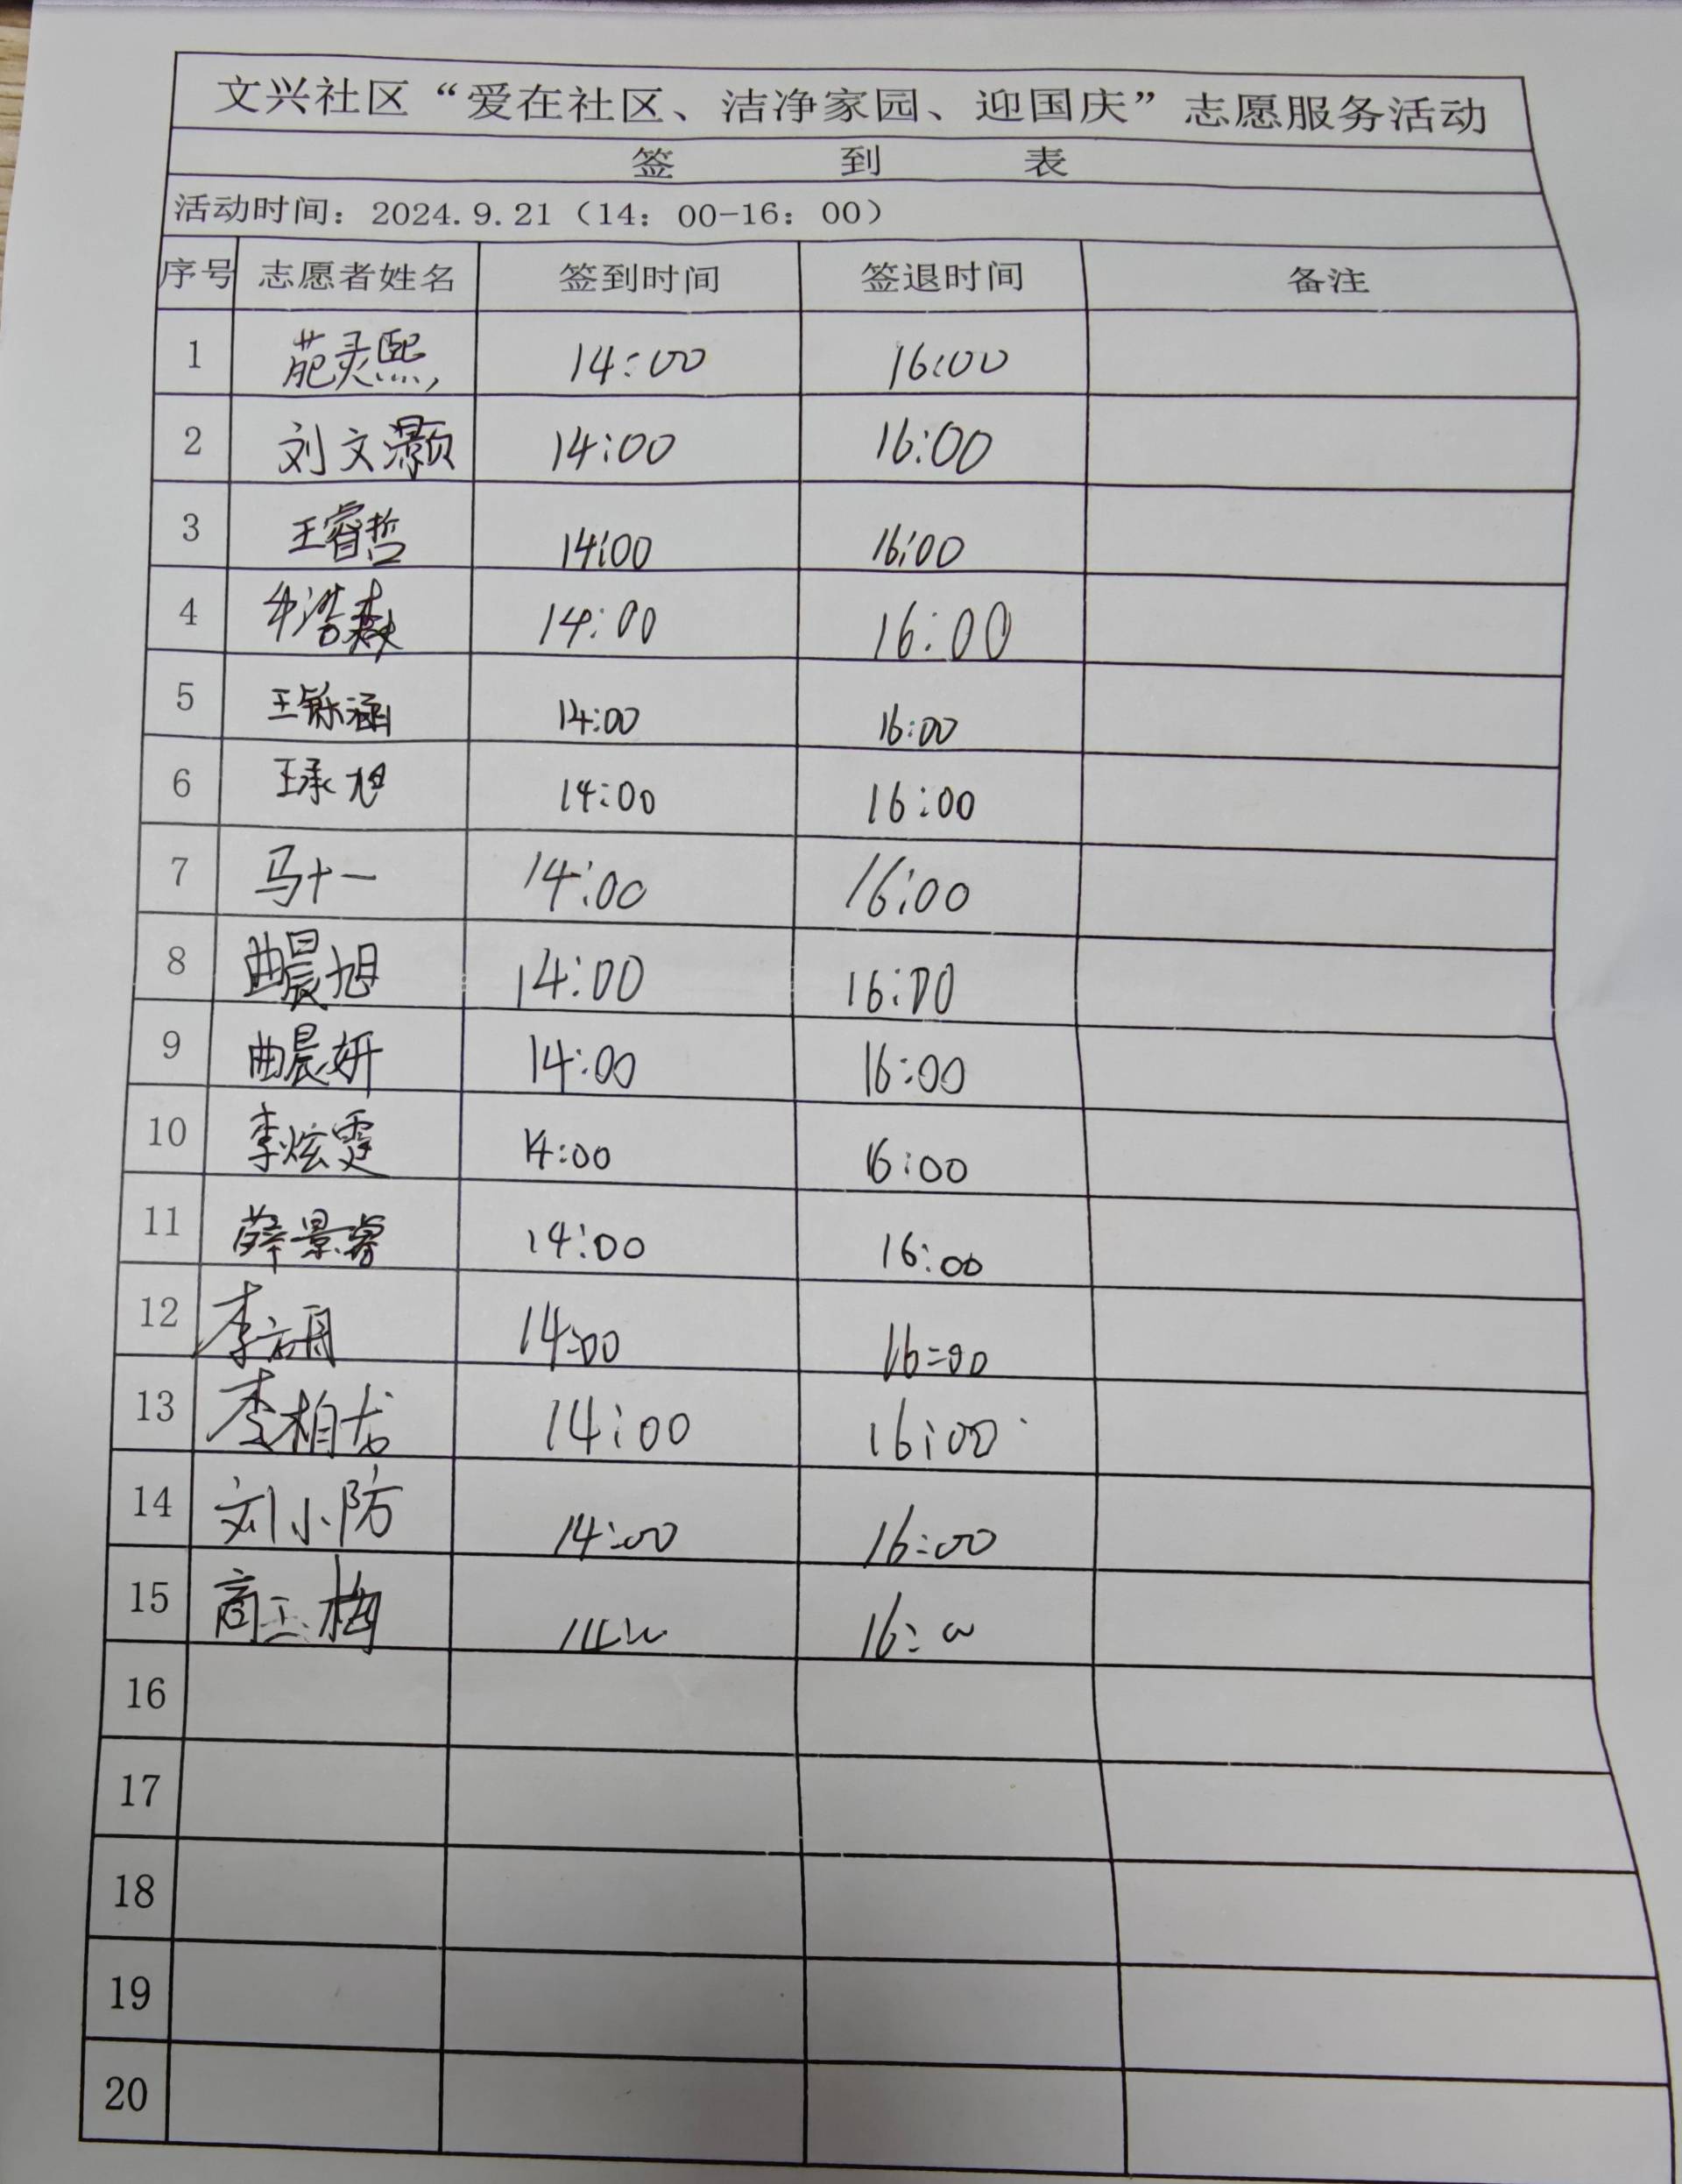 文兴社区“爱在社区、洁净家园、迎国庆”志愿服务活动
签 到 表
活动时间：2024.9.21（14：00-16：00）
序号 志愿者姓名 签到时间 签退时间 备注
1 葩灵熙 14:00 16:00
2 刘文灏 14:00 16:00
3 王睿哲 14:00 16:00
4 牟浩 14:00 16:00
5 王铄涵 14:00 16:00
6 王承旭 14:00 16:00
7 马十一 14:00 16:00
8 曲晨旭 14:00 16:00
9 曲晨妍 14:00 16:00
10 李炫霆 14:00 16:00
11 薛景睿 14:00 16:00
12 李 14:00 16:00
13 李柏龙 14:00 16:00
14 刘小防 14:00 16:00
15 商玉梅 16:00
16
17
18
19
20